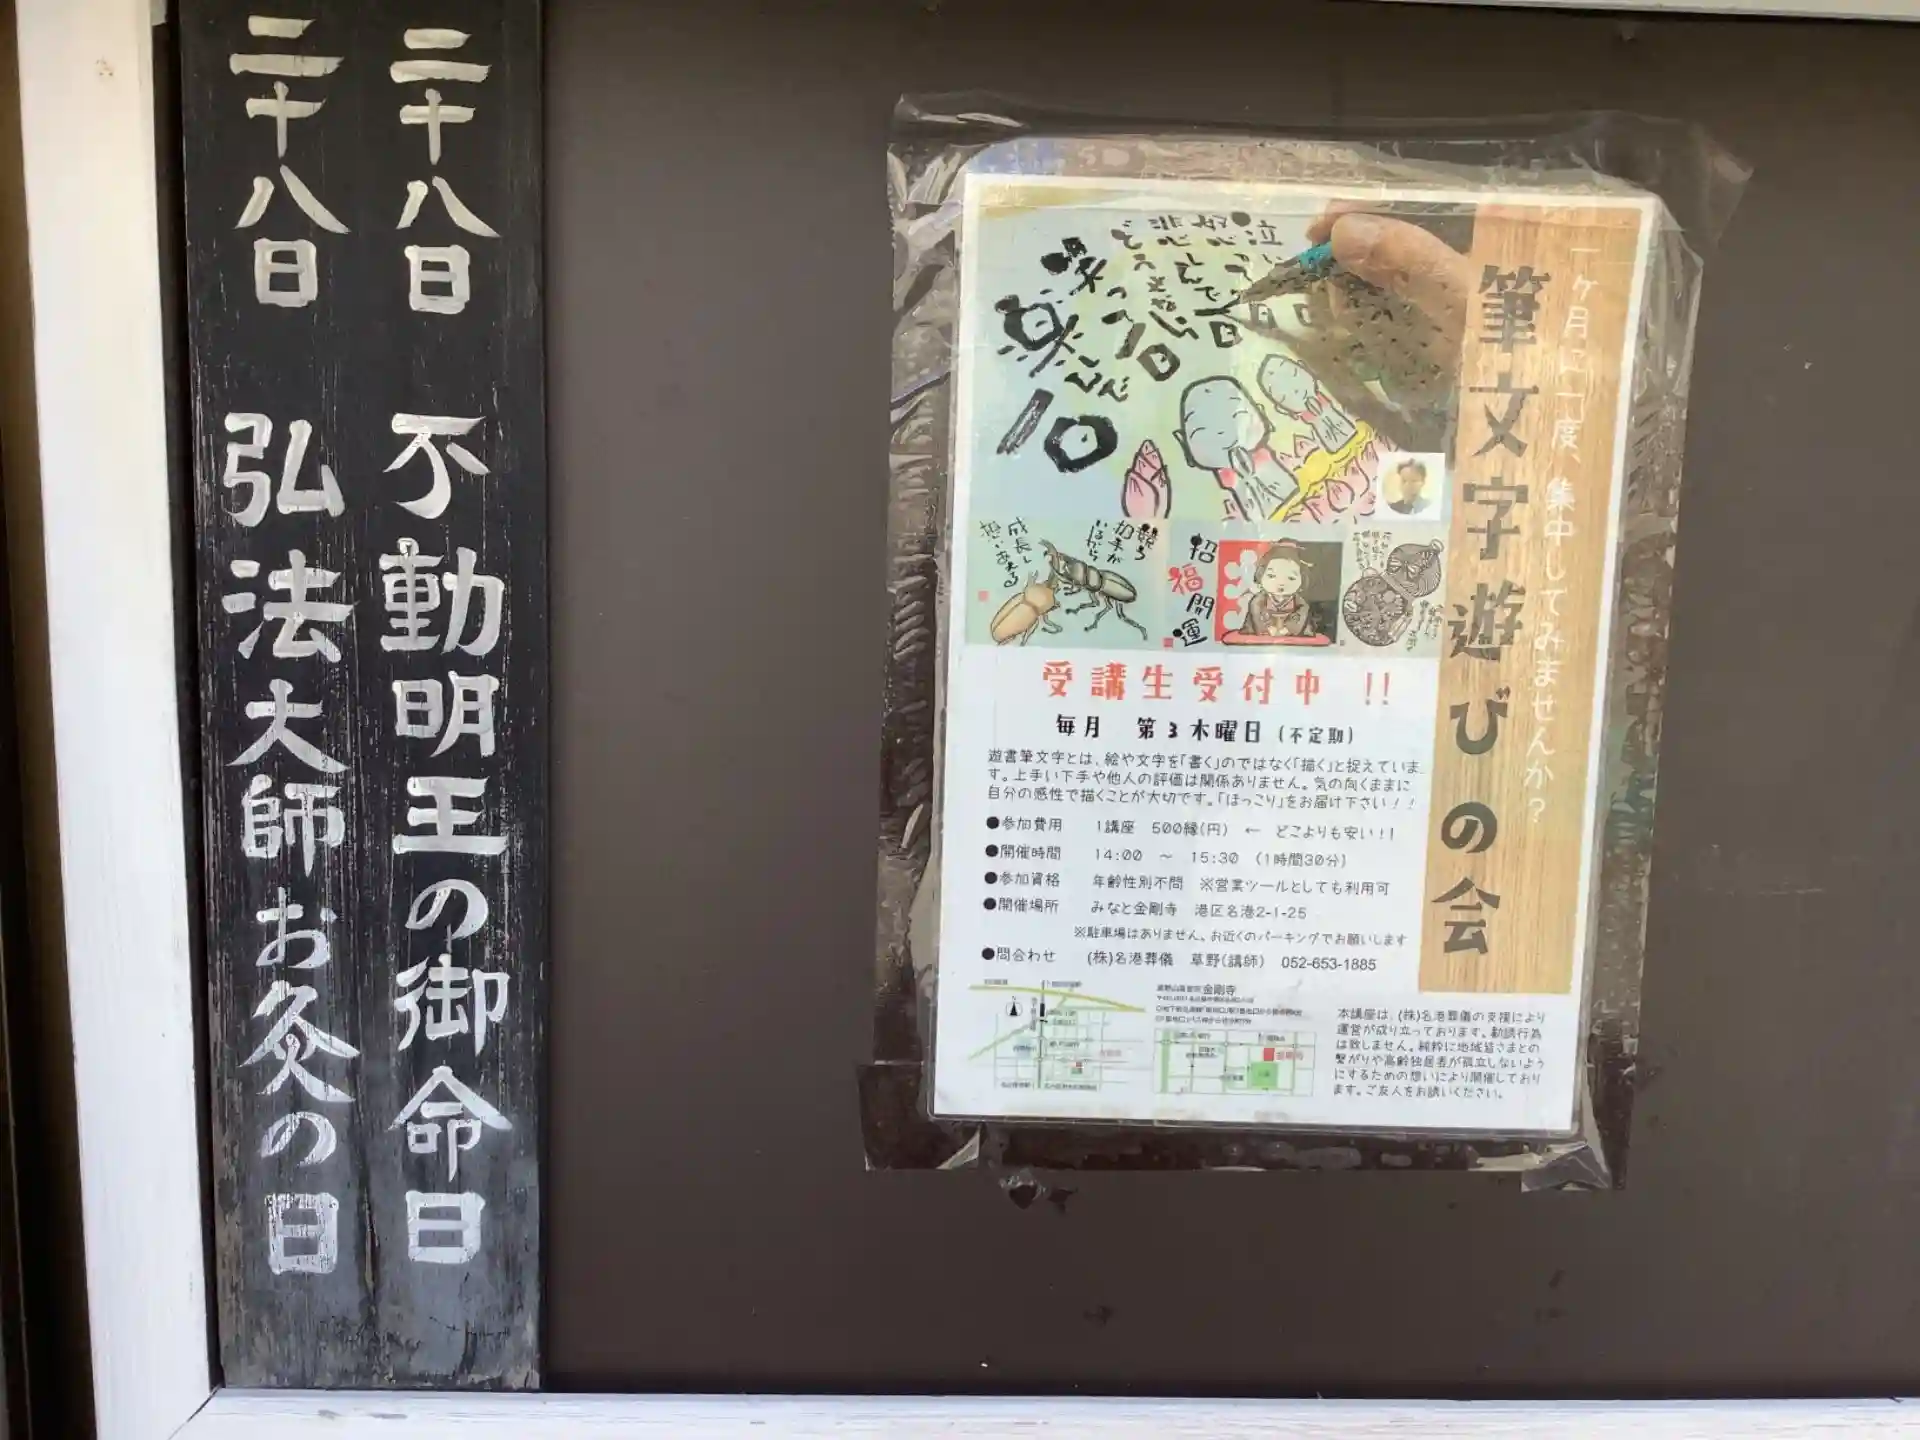 二十八日 不動明王の御命日
二十八日 弘法大師お灸の日
一ヶ月に一度、集中してみませんか？
筆文字遊びの会
笑う
一日
楽しんだ
一日
競う
相手が
いるから
成長し
想いあえる
招
福
開
運
受講生受付中 !!
毎月 第3木曜日(不定期)
遊書筆文字とは、絵や文字を｢書く｣のではなく｢描く｣と捉えていま
す。上手い下手や他人の評価は関係ありません。気の向くままに
自分の感性で描くことが大切です。｢ほっこり｣をお届け下さい！！
●参加費用 1講座 500縁(円) ← どこよりも安い！！
●開催時間 14:00 ～ 15:30 (1時間30分)
●参加資格 年齢性別不問 ※営業ツールとしても利用可
●開催場所 みなと金剛寺 港区名港2-1-25
※駐車場はありません、お近くのパーキングでお願いします
●問合わせ (株)名港葬儀 草野(講師) 052-653-1885
金剛寺
本講座は、(株)名港葬儀の支援により
運営が成り立っております。勧誘行為
は致しません。純粋に地域皆さまとの
繋がりや高齢独居者が孤立しないよう
にするための想いにより開催しており
ます。ご友人をお誘いください。